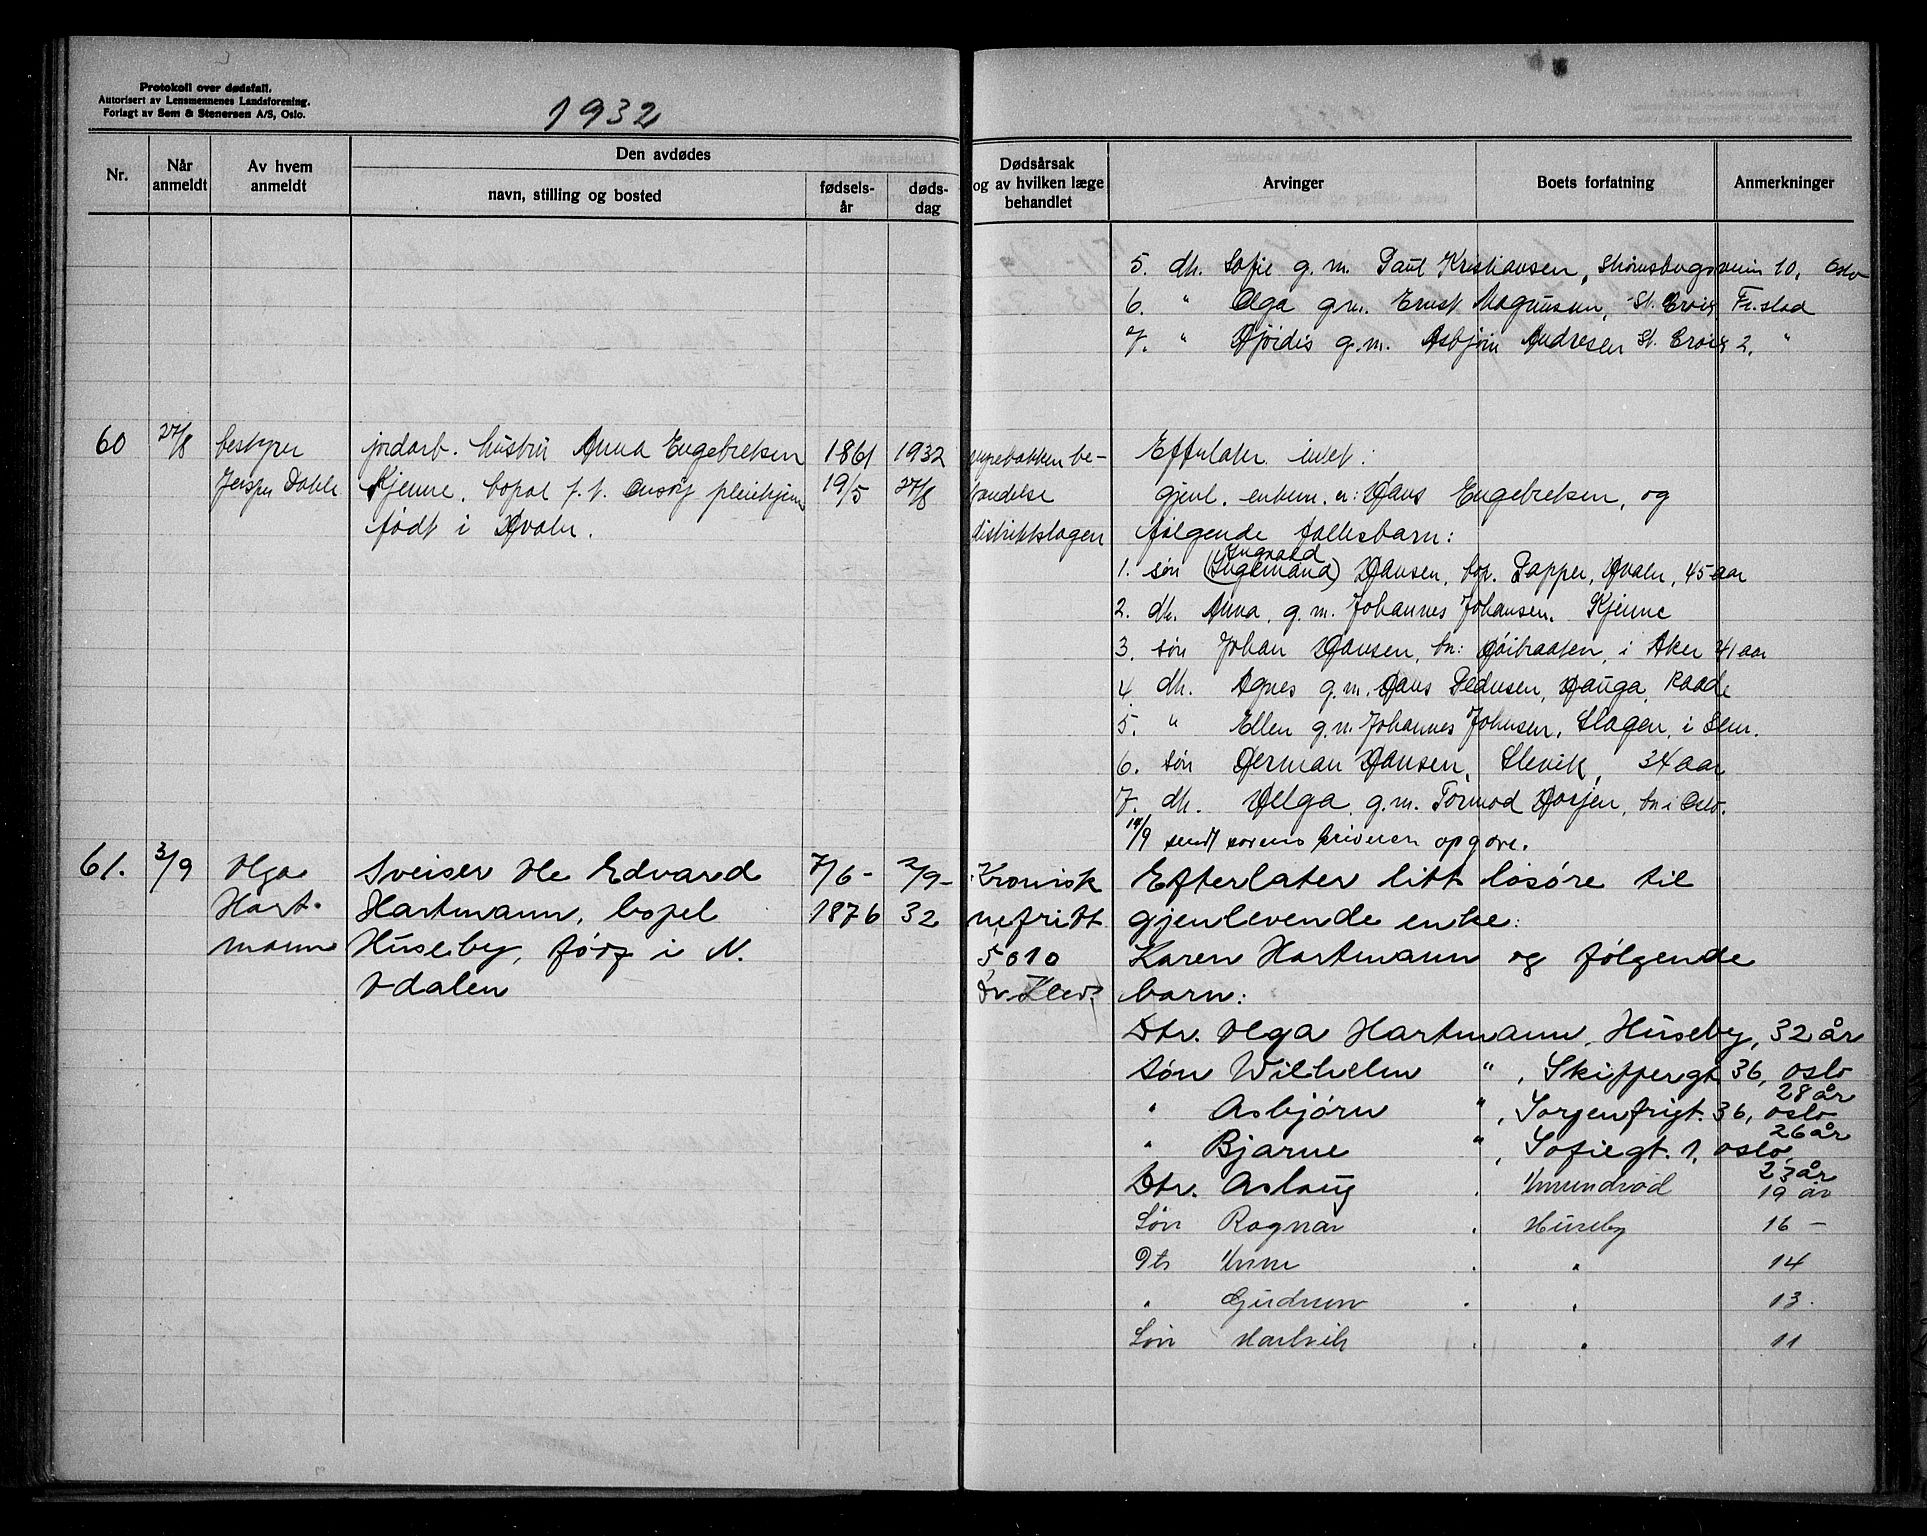 Protokoll over dødsfall.
Autorisert av Lensmennenes Landsforening.
Forlagt av Sem & Stenersen A/S, Oslo.
1932
Nr.
Når anmeldt
Av hvem anmeldt
Den avdødes
navn, stilling og bosted
fødselsår
dødsdag
Dødsårsak og av hvilken læge behandlet
Arvinger
Boets forfatning
Anmerkninger
5. dtr. Sofie g.m. Paul Kristiansen, 10, Oslo
6. " Olga g.m. Ernst Magnussen, St. Croix Fr.stad
7. " Hjørdis g.m. Asbjørn Andresen St. Croix 2. "
60 27/8 bestyrer jordarb. hustru Anna Engebretsen 1861 1932
Jesper Dahle Kjenne, bopel f.t. Onsøy pleiehjem 19/5 27/8
født i Hvaler.
distriktslægen
Efterlater intet:
gjenl. enkem. er: Hans Engebretsen, og
følgende fellesbarn:
Ingvald
1. søn (Ingemand) Hansen, bop. Papper, Hvaler, 45 aar
2. dtr. Anna, g.m. Johannes Johansen. Kjenne
3. søn Johan Hansen, bor: Høibraaten, i Aker 41 aar
4. dtr. Agnes g.m. Hans Pedersen, Hauga, Raade
5. " Ellen g.m. Johannes Johnsen, Slagen, i Sem.
6. søn Herman Hansen, Slevik, 34 aar
7. dtr. Helga g.m. Tormod Hosjen, bor i Oslo.
14/9 sendt sorenskriveren opgave.
61. 3/9 Olga Sveiser Ole Edvard 7/6- 2/9- Kronisk
Hart- Hartmann, bopel 1876 32 nefritt
mann Huseby, født i N. 5010
Odalen
Efterlater litt løsøre til
gjenlevende enke:
Karen Hartmann og følgende
barn:
Dtr. Olga Hartmann, Huseby, 32 år
søn Wilhelm " , Skippergt 36, Oslo
28 år
" Asbjørn " , Sorgenfrigt. 36, Oslo
26 år
" Bjarne " , Sofiegt. 1, Oslo,
23 år
Dtr. Aslaug " Ununndrød 19 år
Søn Ragnar " Huseby 16 –
Dtr Unni " " 14
" Gudrun " " 13
Søn Hartvik " " 11